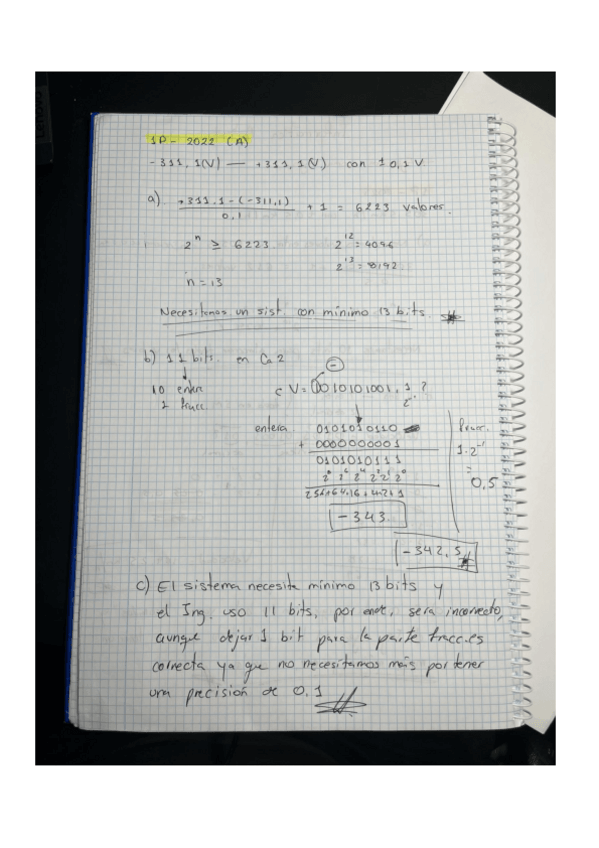 1P - 2022 (A)
-311,1(V) — +311,1(V) con 10,1V
a) +311.1-(-311,1) / 0,1 + 1 = 6223 valores.
2^n ≥ 6223 2^12 = 4096
2^13 = 8192
n = 13
Necesitamos un sist. con mínimo 13 bits.
b) 11 bits. en Ca2
10 entera
1 fracc.
V = 1010101001,1 ?
entera 0101010110
+ 0000000001
0101010111
256+64+16+4+2+1
-343
Fracc.
1·2^-1
=
0,5
-342,5
c) El sistema necesita mínimo 13 bits y
el Ing. uso 11 bits, por ende, sera incorrecto,
aunque dejar 1 bit para la parte fracc. es
correcta ya que no necesitamos más por tener
una precisión de 0,1